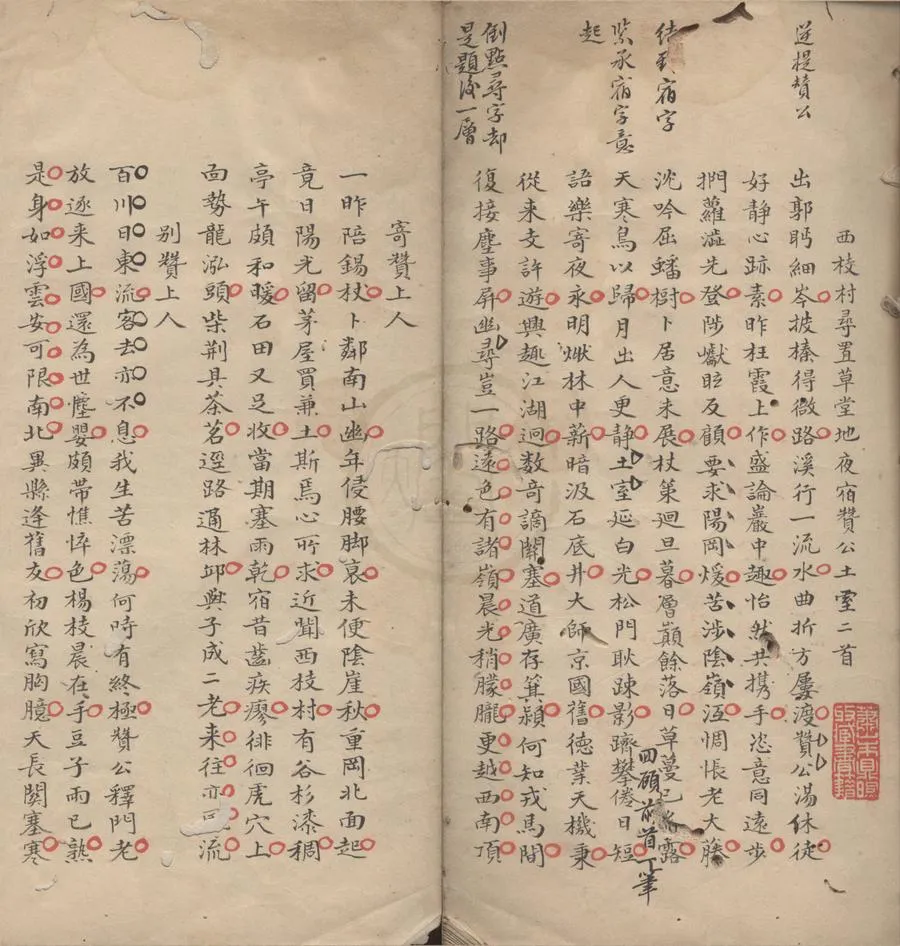 逆提贊公
結到宿字
緊承宿字意
起
倒點尋字却
是題後一層
西枝村尋置草堂地夜宿贊公土室二首
出郭眄細岑披榛得微路溪行一流水曲折方屢渡贊公湯休徒
好靜心跡素昨枉霞上作盛論巖中趣怡然共攜手恣意同遠步
捫蘿澁先登陟巘眩反顧要求陽岡煖苦涉陰嶺沍惆悵老大藤
沈吟屈蟠樹卜居意未展杖策廻且暮層巔餘落日草蔓已露
天寒鳥以歸月出人更靜土室延白光松門耿疎影躋攀倦日短
語樂寄夜永明燃林中薪暗汲石底井大師京國舊德業天機秉
從來支許遊興趣江湖迥数奇謫關塞道廣存箕潁何知戎馬間
復接塵事屏幽尋豈一路遠色有諸嶺晨光稍朦朧更越西南頂
回顧前首下筆
寄贊上人
一昨陪錫杖卜鄰南山幽年侵腰脚衰未便陰崖秋重岡北面起
竟日陽光留茅屋買兼土斯焉心所求近聞西枝村有谷杉漆稠
亭午頗和暖石田又足收當期塞雨乾宿昔齒疾瘳徘徊虎穴上
面勢龍泓頭柴荊具茶茗逕路通林邱與子成二老来往亦流
別贊上人
百川日東流客去亦不息我生苦漂蕩何時有終極贊公釋門老
放逐来上國還為世塵嬰頗帶憔悴色楊枝晨在手豆子雨已熟
是身如浮雲安可限南北異縣逢舊友初欣寫胸臆天長關塞寒